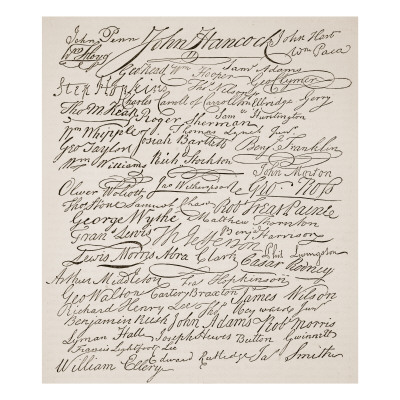 John Penn John Hancock John Hart
Wm Floyd Wm Paca
Geo Read Wm Hooper Saml Adams
Step Hopkins Thos Nelson Geo Clymer
Charles Carroll of Carrollton Elbridge Gerry
Tho M:Kean Roger Sherman Sam Huntington
Wm Whipple Thomas Lynch Junr
Geo Taylor Josiah Bartlett Benj Franklin
Wm Williams Richd Stockton
John Morton
Oliver Wolcott Jno Witherspoon Geo Ross
Thos Stone Samuel Chase Robt Treat Paine
George Wythe Matthew Thornton
Fran Lewis Th Jefferson Benj Harrison
Lewis Morris Abra Clark Phil Livingston
Cæsar Rodney
Arthur Middleton Fras Hopkinson
Geo Walton Carter Braxton James Wilson
Richard Henry Lee Tho Heyward Junr
Benjamin Rush John Adams Robt Morris
Lyman Hall Joseph Hewes Button Gwinnett
Francis Lightfoot Lee
William Ellery Edward Rutledge Jas Smith